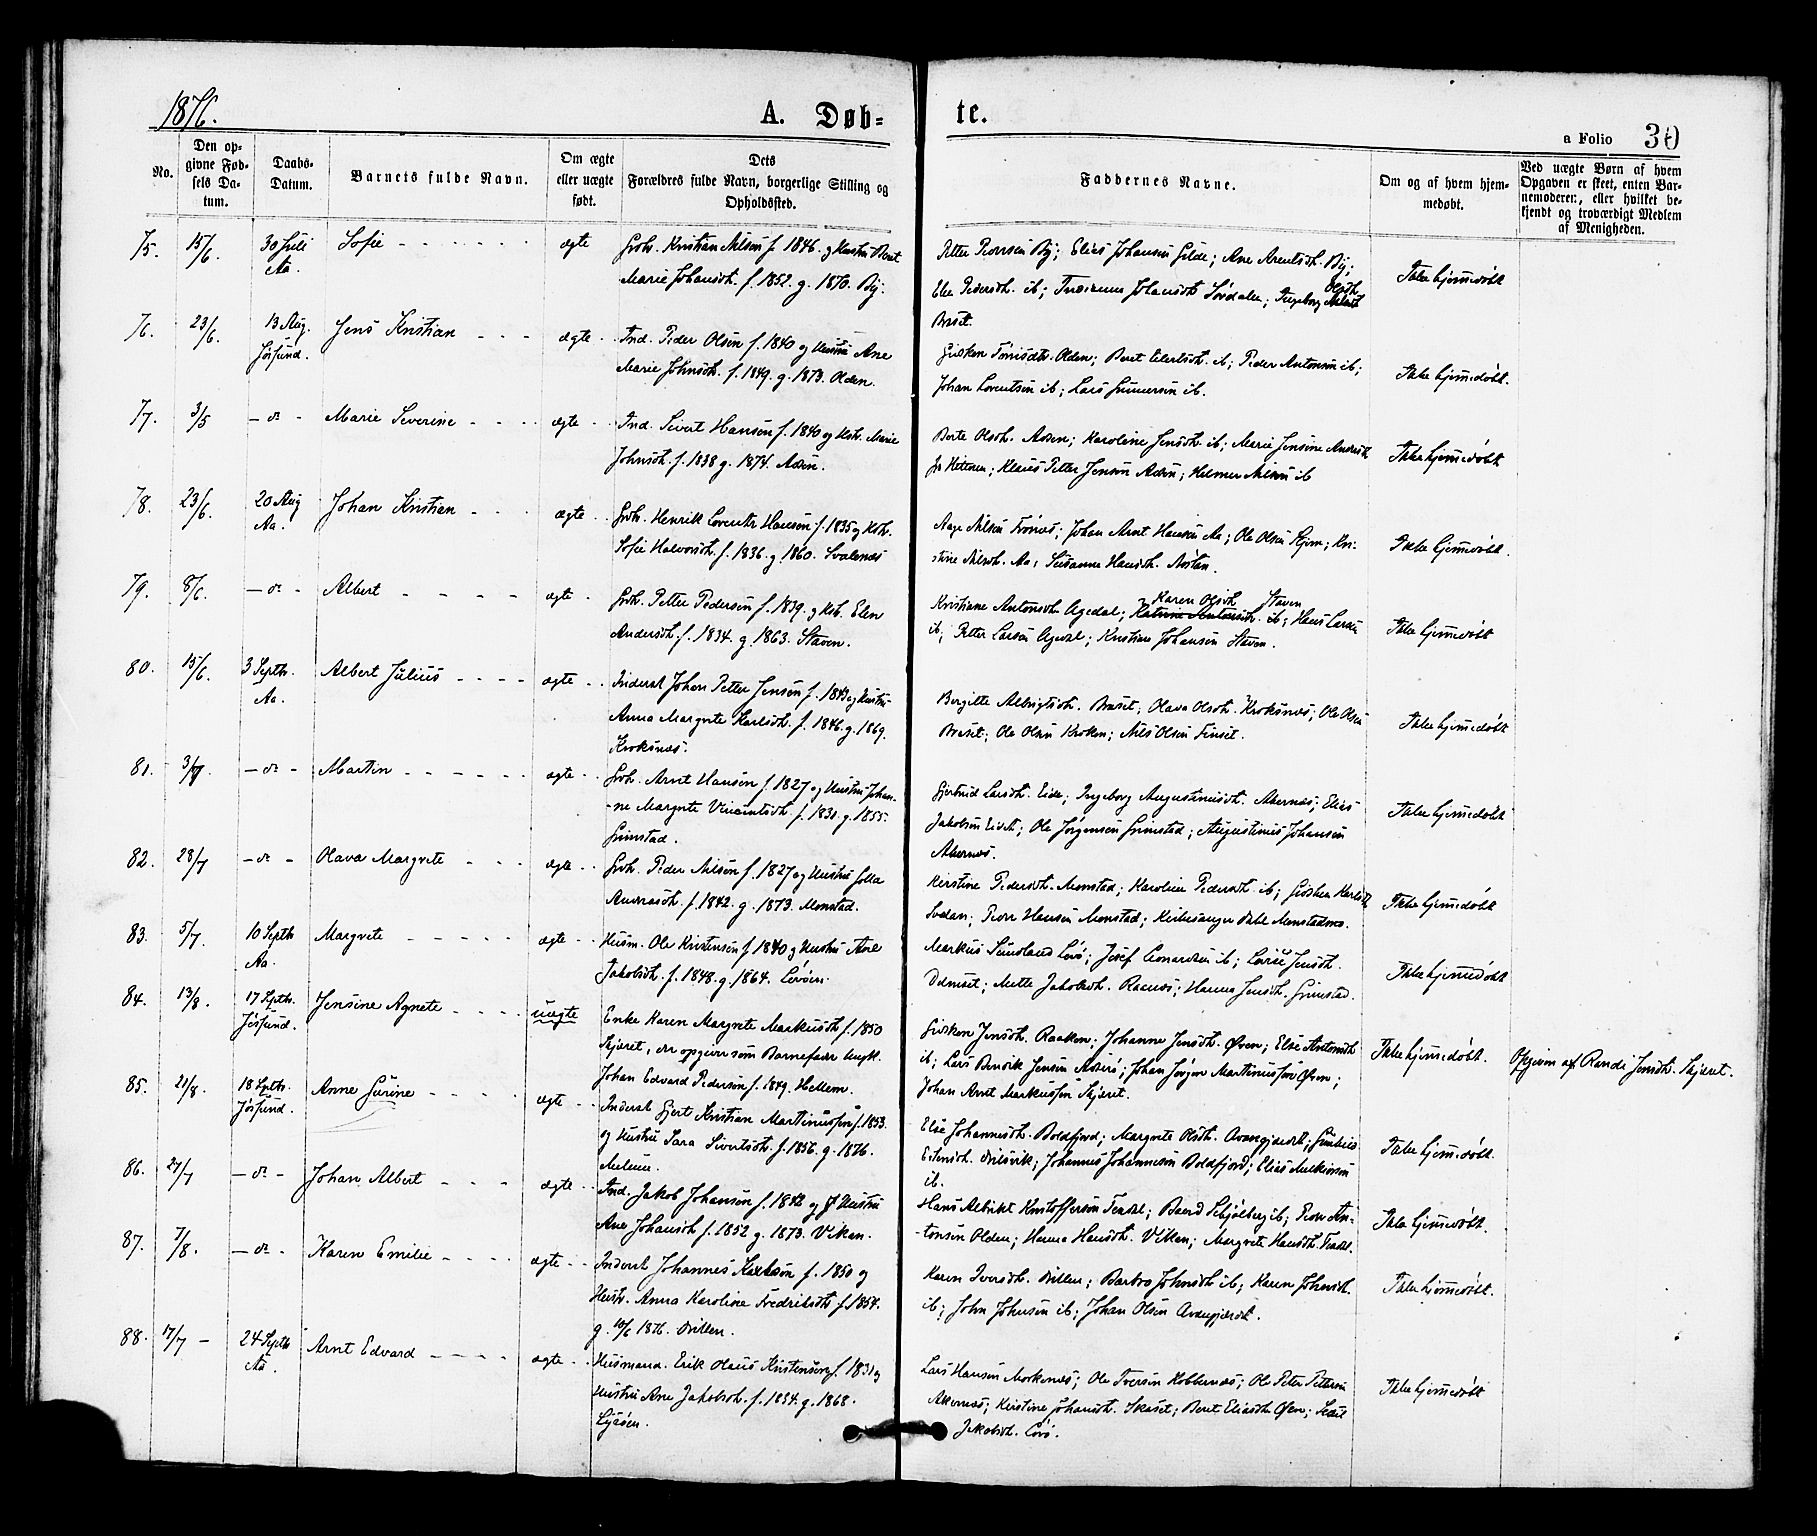 1876.
A. Døb-
te.
a Folio 30
No.
Den op-
givne Fød-
sels Da-
tum.
Daabs-
Datum.
Barnets fulde Navn.
Om ægte
eller uægte
født.
Dets
Forældres fulde Navn, borgerlige Stilling og
Opholdssted.
Faddernes Navne.
Om og af hvem hjem-
medøbt.
Ved uægte Børn af hvem
Opgaven er skeet, enten Bar-
nemoderen, eller hvilket be-
kjendt og troværdigt Medlem
af Menigheden.
75. 15/6. 30 Juli Sofie ægte Grdr. Kristian Nilsen f. 1846. og Hustru Beret
Aa. Marie Johansdt. f. 1852. g. 1870. By.
Petter Pedersen By; Elias Johansen Gilde; Ane Arentsdt. By;
Else Pedersdt. ib; Johansdt. Sørdalen; Ingeborg Olsdt.
Braset.
Ikke hjemmedøbt
76. 23/6. 13 Aug. Jens Kristian ægte Ind. Peder Olsen f. 1840 og Hustru Ane
Jøssund. Marie Johnsdt. f. 1849. g. 1873. Olden.
Gjertsen Olden; Beret Eilertsdt. ib; Peder Antonsen ib;
Johan Lorentsen ib; Lars Gunnersen ib.
Ikke hjemmedøbt.
77. 3/5 — do - Marie Severine ægte Ind. Sivert Hansen f. 1840 og Hstr. Marie
Johnsdt. f. 1838 g. 1874. Asen.
Berte Olsdt. Asen; Karoline Jensdt. ib; Marie Jensine Andersdt.
Klaus Petter Jensen Asen; Helmer Nilsen ib
Ikke hjemmedøbt
78. 23/6. 20 Aug Johan Kristian ægte Grdr. Henrik Lorents Hansen f. 1835 og Hstr.
Aa. Sofie Halvorsdt. f. 1836. g. 1860. Svalenes
Aage Nilsen; Johan Arnt Hansen Aa; Ole Olsen Hjem; Kri-
stine Nilsdt. Aa; Susanne Hansdt.
Ikke hjemmedøbt.
79. 8/6. — do - Albert ægte Grdr. Petter Pedersen f. 1839. og Hstr. Elen
Andersdt. f. 1834. g. 1863. Staven.
Karen Olsdt. Staven
Kristiane Antonsdt. Agedal; Katrine Antonsdt. ib; Hans Larsen
ib; Petter Larsen Agedal; Kristine Johansen Staven.
Ikke hjemmedøbt
80. 15/6. 3 Septbr. Albert Julius ægte Inderst Johan Petter Jensen f. 1843 og Hustru
Aa. Anna Margrete Karlsdt. f. 1846. g. 1869.
Kroksnæs.
Bergitte Albrigtsdt. Braset; Olava Olsdt. Kroksnæs; Ole Olsen
Braset; Ole Olsen Kroken; Nils Olsen Finset.
Ikke hjemmedøbt
81. 3/7. — do - Martin ægte Grdr. Arnt Hansen f. 1827 og Hustru Johan-
ne Margrete Vincentsdt. f. 1831. g. 1855.
Grimstad.
Gjertrud Larsdt. Eide; Ingeborg Augustinusdt. Akernæs; Elias
Jakobsen Eidet; Ole Jørgensen Grimstad; Augustinus Johansen
Akernæs.
Ikke hjemmedøbt
82. 28/7 — do - Olava Margrete ægte Grdr. Peder Nilsen f. 1827 og Hustru
Andreasdt. f. 1842. g. 1873. Monstad.
Kerstine Pedersdt. Monstad; Karoline Pedersdt. ib;
Peder Hansen Monstad; Kirkesanger Dahl Monstadmo.
Ikke hjemmedøbt
83. 5/7. 10 Septb. Margrete ægte Husm. Ole Kristensen f. 1840 og Hustru Ane
Aa. Jakobsdt. f. 1848. g. 1864. Lövöen.
Markus Sundland Lövö; Josef Leonardsen ib; Lovise Jensdt.
Mette Jakobsdt. Hanna Jensdt. Grimstad.
Ikke hjemmedøbt
84. 13/8. 17 Septbr. Jensine Agnete uægte Enke Karen Margrete Markusdt. f. 1850
Jøssund. Skjæret, der opgiver som Barnefader Ungk.
Johan Edvard Pedersen f. 1849. Hellem.
Jensdt. Raaken; Johanne Jensdt. Øren; Else Antonsdt.
ib; Lars Benrik Jensen; Johan Jørgen Martinussen Øren;
Johan Arnt Markussen Skjæret.
Ikke hjemmedøbt.
Opgiven af Randi Jensdt. Skjæret.
85. 21/8. 18 Septbr. Anne Gurine ægte Inderst Gjert Kristian Martinussen f. 1853.
Jøssund. og Hustru Sara Sivertsdt. f. 1856. g. 1876.
Else Johannesdt. Boldfjord; Margrete Olsdt.
Johannes Johannesen Boldfjord; Elias
ib.
Ikke hjemmedøbt.
86. 27/7 — do - Johan Albert ægte Ind. Jakob Johansen f. 1842 og Hustru
Ane Johansdt. f. 1852 g. 1873. Viken.
Hans Albrikt Kristoffersen Teksdal; Baard ib; Peder An-
tonsen Olden; Hanna Hansdt. Viken; Margrete Hansdt. Teksdal.
Ikke hjemmedøbt.
87. 7/8. — do - Karen Emilie ægte Inderst Johannes Karlsen f. 1850 og
Hustr. Anna Karoline Fredriksdt. f. 1854.
g. 10/6 1876.
Karen Iversdt.; Barbro Johnsdt. ib; Karen Johnsdt.
ib; John Johnsen ib; Johan Olsen
Ikke hjemmedøbt.
88. 17/7 - 24 Septbr Arnt Edvard ægte Husmand. Erik Olaus Kristensen f. 1831 og
Aa. Hustru Ane Jakobsdt. f. 1834. g. 1868.
Lysøen.
Lars Hansen Morkenæs; Ole Iversen; Ole Peter Pettersen
Akernæs; Kristine Johansdt. Skaset; Beret Eliasdt. Øen;
Jakobsdt. Lövö.
Ikke hjemmedøbt